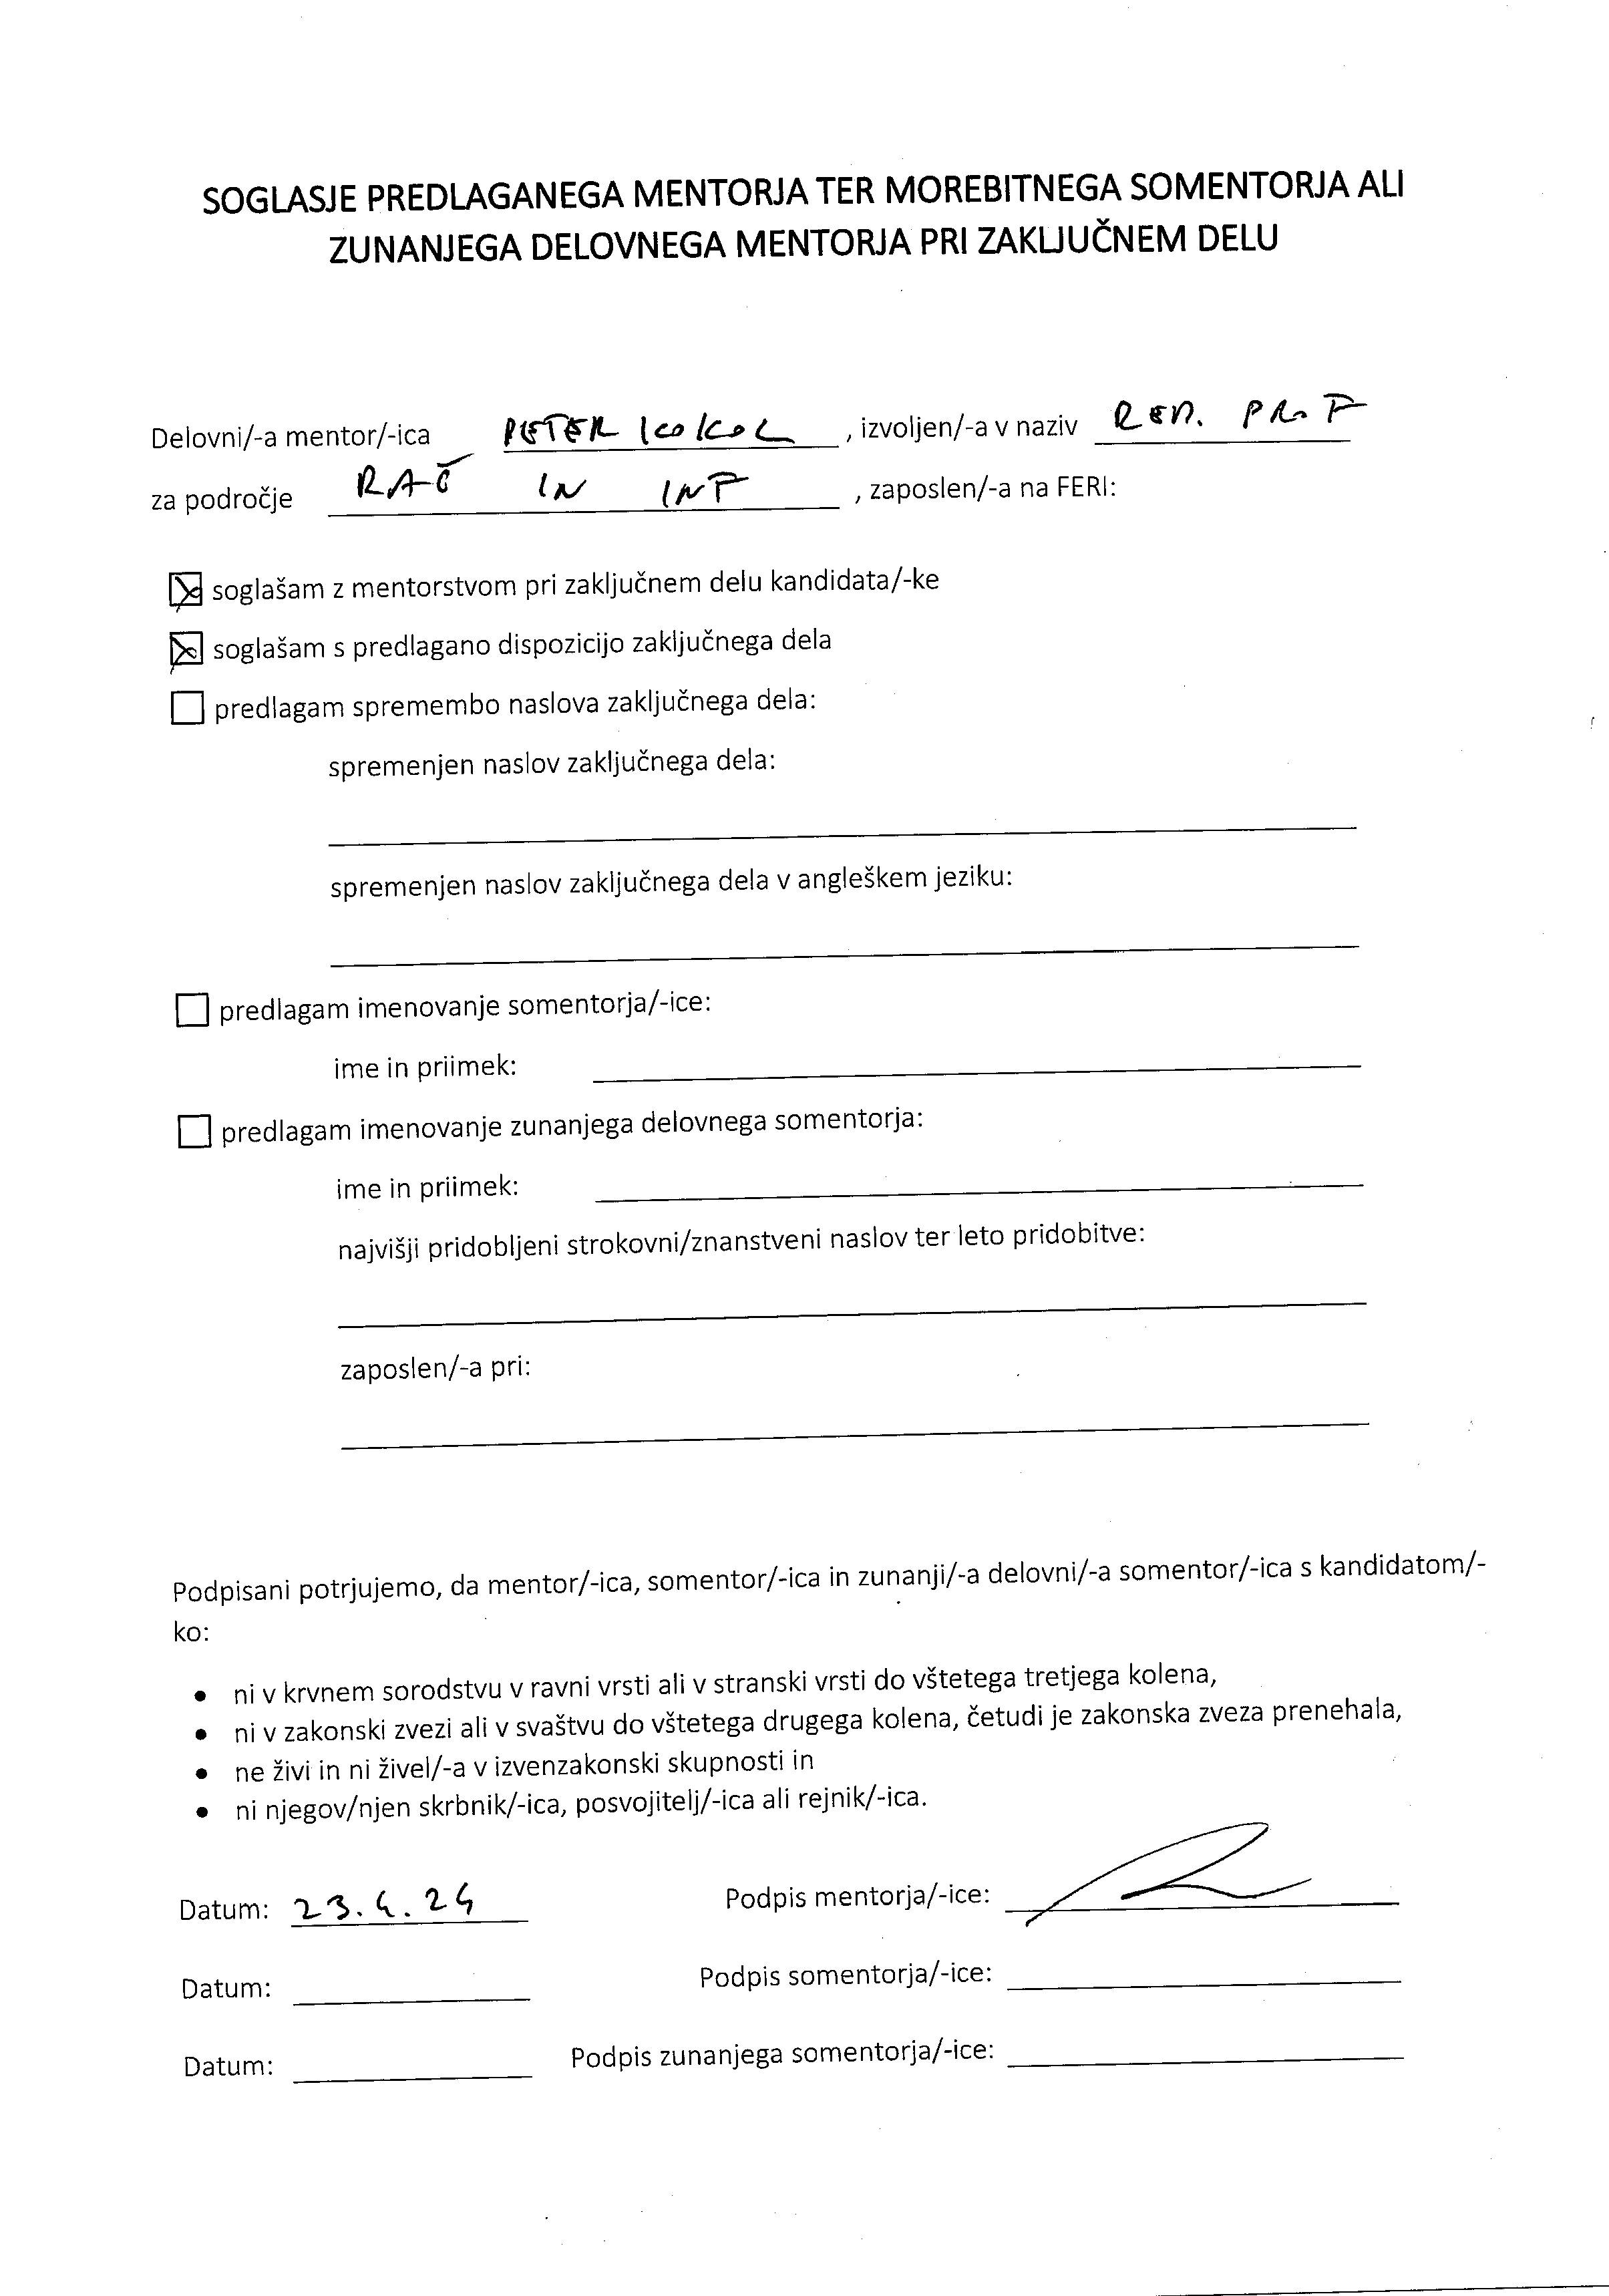 SOGLASJE PREDLAGANEGA MENTORJA TER MOREBITNEGA SOMENTORJA ALI
ZUNANJEGA DELOVNEGA MENTORJA PRI ZAKLJUČNEM DELU
Delovni/-a mentor/-ica PETER KOKOL, izvoljen/-a v naziv RED. PROF
za področje RAČ IN INF, zaposlen/-a na FERI:
soglašam z mentorstvom pri zaključnem delu kandidata/-ke
soglašam s predlagano dispozicijo zaključnega dela
predlagam spremembo naslova zaključnega dela:
spremenjen naslov zaključnega dela:
spremenjen naslov zaključnega dela v angleškem jeziku:
predlagam imenovanje somentorja/-ice:
ime in priimek:
predlagam imenovanje zunanjega delovnega somentorja:
ime in priimek:
najvišji pridobljeni strokovni/znanstveni naslov ter leto pridobitve:
zaposlen/-a pri:
Podpisani potrjujemo, da mentor/-ica, somentor/-ica in zunanji/-a delovni/-a somentor/-ica s kandidatom/-
ko:
• ni v krvnem sorodstvu v ravni vrsti ali v stranski vrsti do vštetega tretjega kolena,
• ni v zakonski zvezi ali v svaštvu do vštetega drugega kolena, četudi je zakonska zveza prenehala,
• ne živi in ni živel/-a v izvenzakonski skupnosti in
• ni njegov/njen skrbnik/-ica, posvojitelj/-ica ali rejnik/-ica.
Datum: 23.4.24 Podpis mentorja/-ice:
Datum: Podpis somentorja/-ice:
Datum: Podpis zunanjega somentorja/-ice: